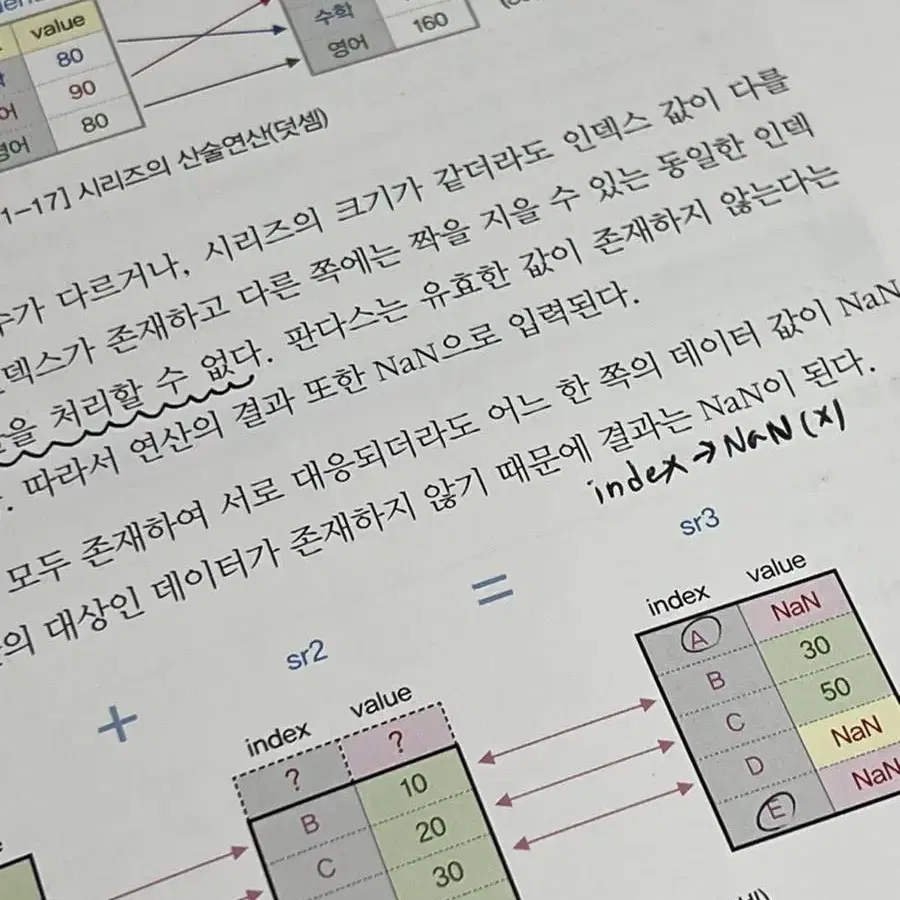 value
80
90
영어 80
수학
영어 160
1-17] 시리즈의 산술연산(덧셈)
수가 다르거나, 시리즈의 크기가 같더라도 인덱스 값이 다를
덱스가 존재하고 다른 쪽에는 짝을 지을 수 있는 동일한 인덱
을 처리할 수 없다. 판다스는 유효한 값이 존재하지 않는다는
. 따라서 연산의 결과 또한 NaN으로 입력된다.
모두 존재하여 서로 대응되더라도 어느 한 쪽의 데이터 값이 NaN
의 대상인 데이터가 존재하지 않기 때문에 결과는 NaN이 된다.
index → NaN (x)
+
sr2
index value
? ?
B 10
C 20
30
=
sr3
index value
A NaN
B 30
C 50
D NaN
E NaN